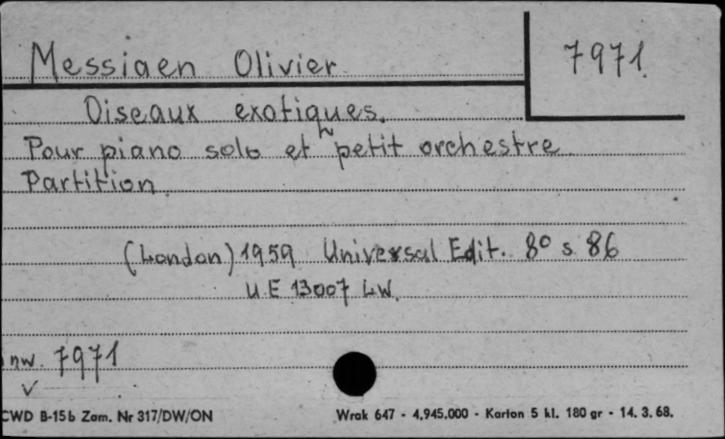 Messiaen Olivier
7971
Oiseaux exotiques.
Pour piano solo et petit orchestre
Partition.
(London) 1959 Universal Edit. 8° s. 86
U.E 13007 LW.
inw. 7971
CWD B-15b Zam. Nr 317/DW/ON
Wrak 647 - 4.945.000 - Karton 5 kl. 180 gr - 14. 3. 68.